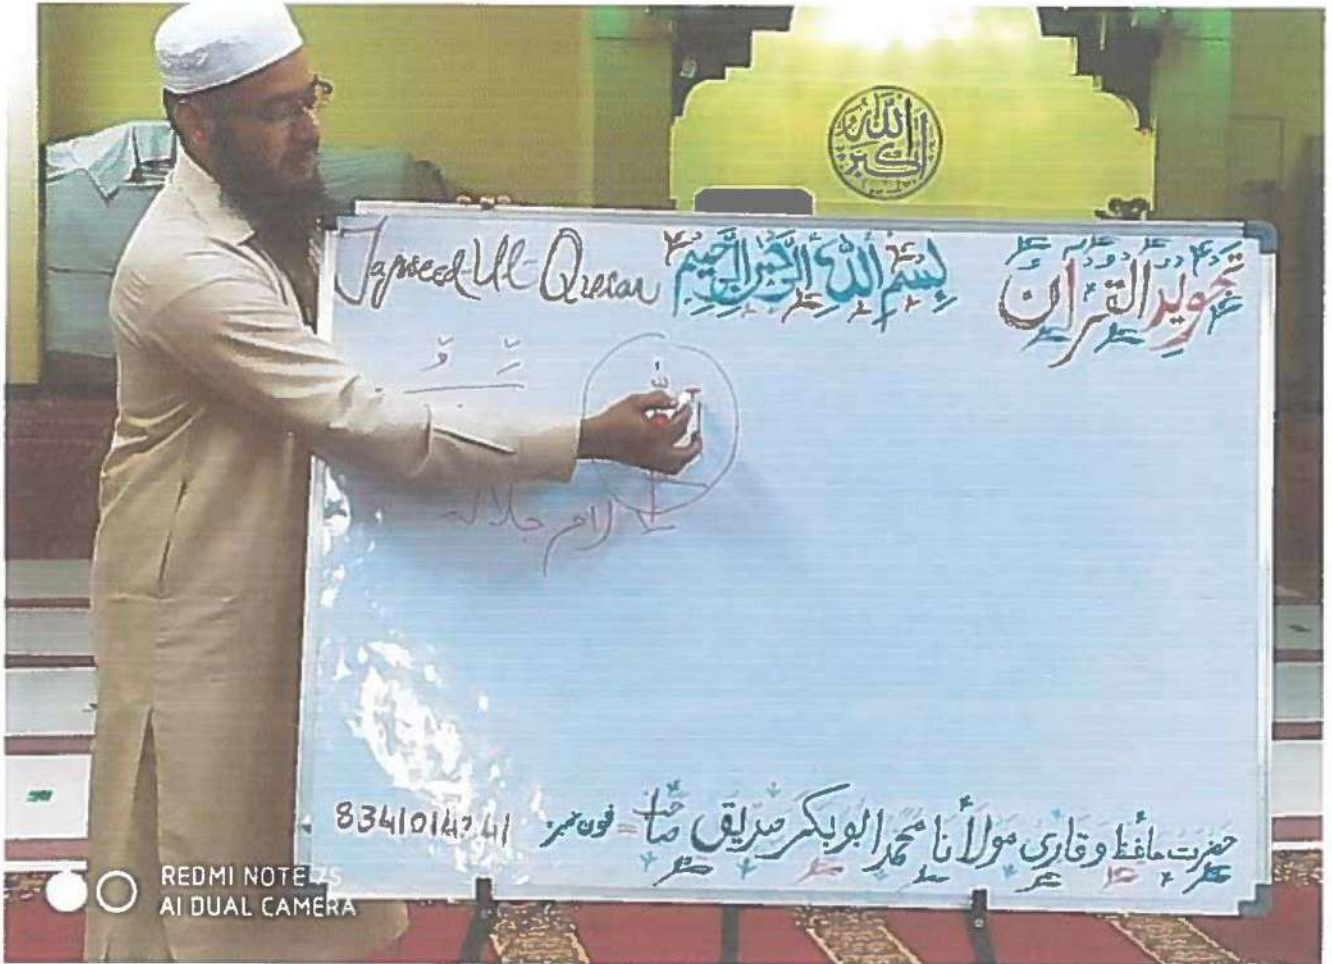 الله اكبر
Tajweed-Ul-Quran
بِسْمِ اللهِ الرَّحْمٰنِ الرَّحِيْمِ
تجوید القرآن
لام جلالہ
حضرت حافظ و قاری مولانا محمد ابوبکر صدیق صاحب = فون نمبر
REDMI NOTE 7S
AI DUAL CAMERA